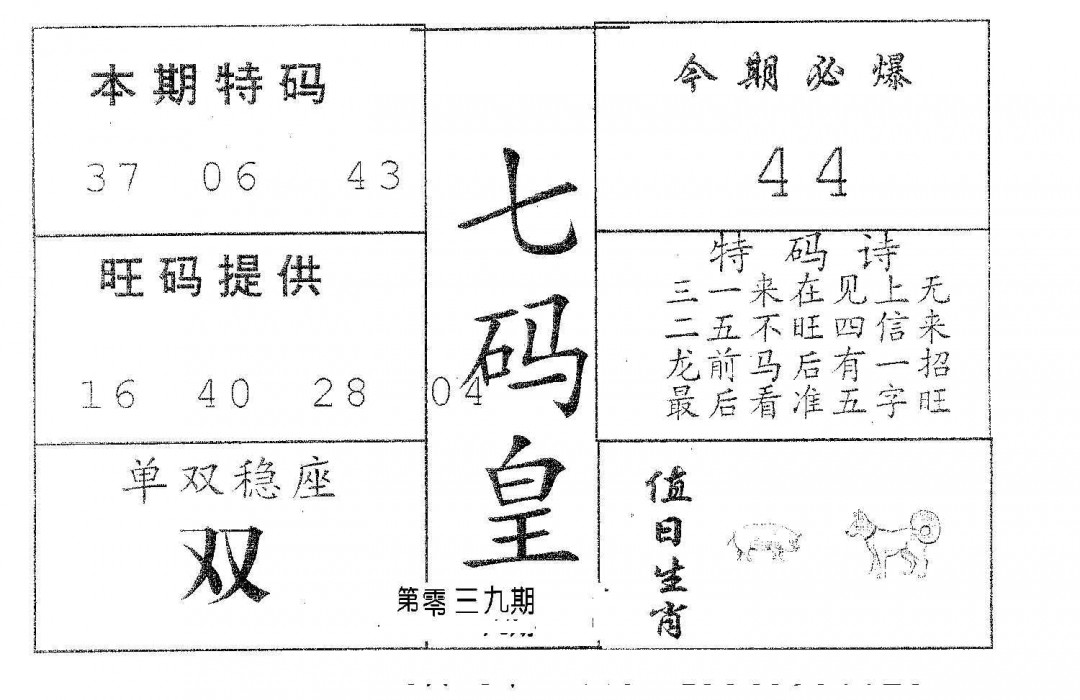 本期特码
37 06 43
旺码提供
16 40 28 04
单双稳座
双
七码皇
第零三九期
今期必爆
44
特码诗
三一来在见上无
二五不旺四信来
龙前马后有一招
最后看准五字旺
值日生肖